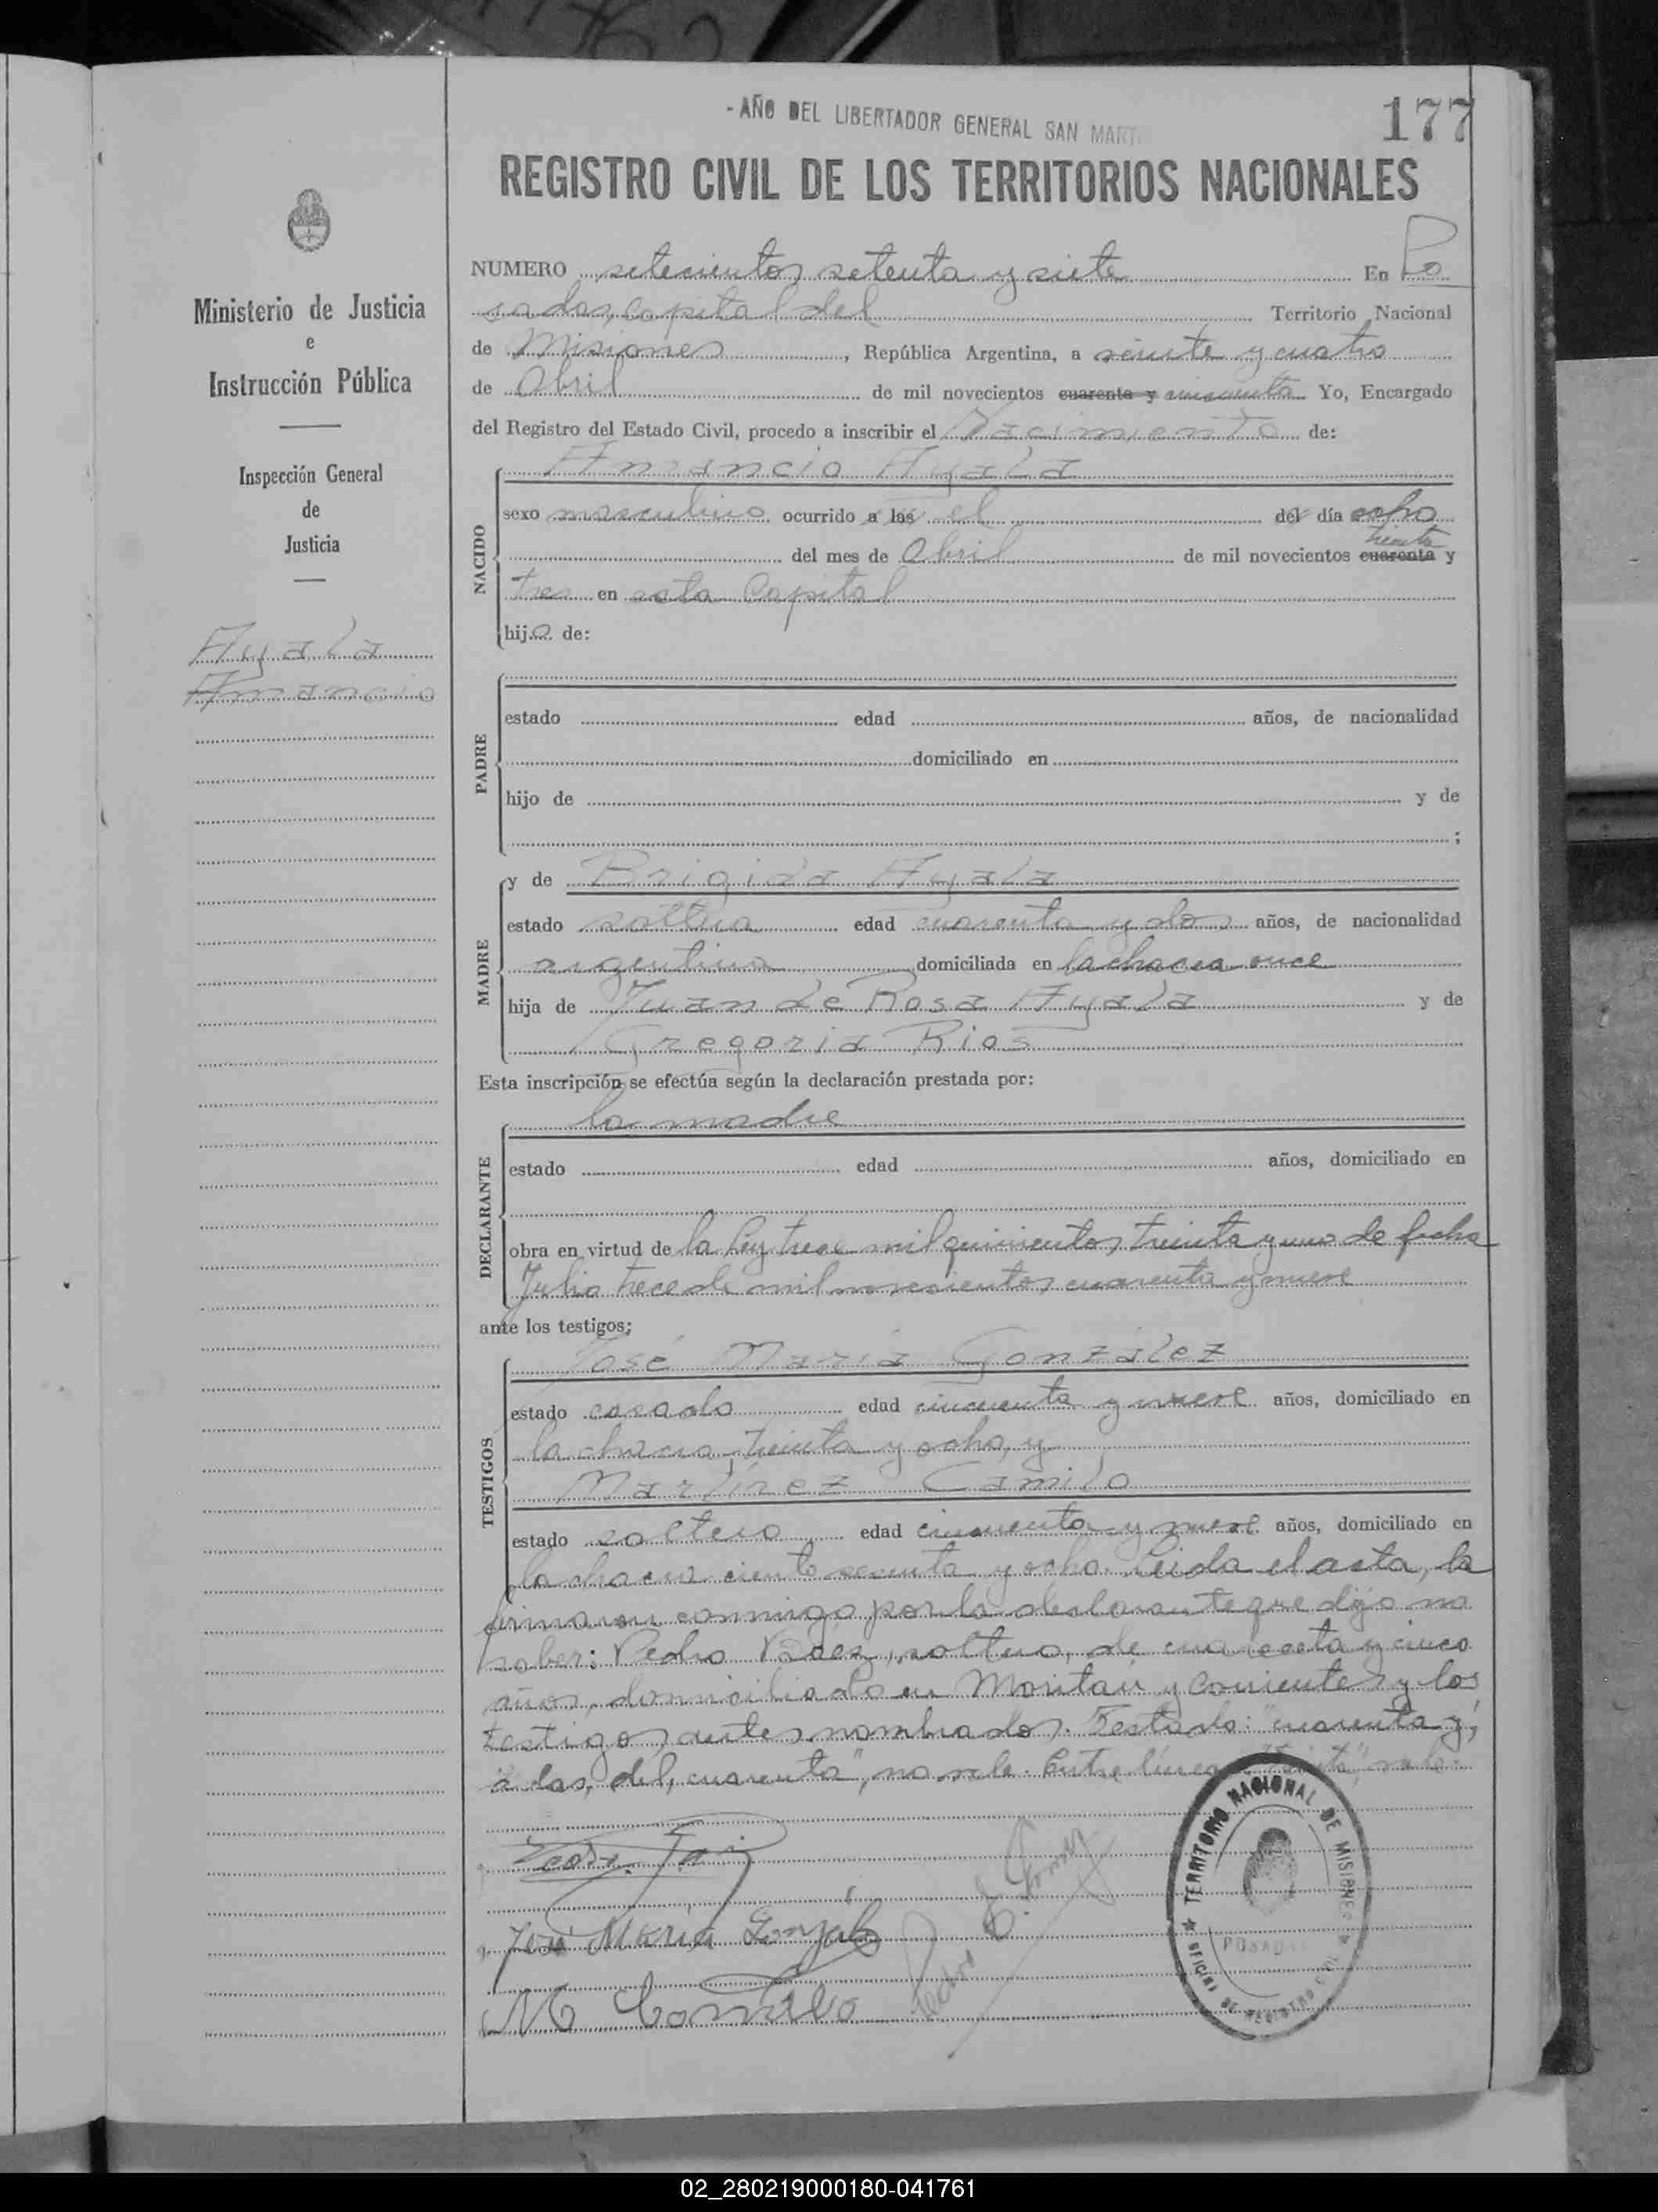 - AÑO DEL LIBERTADOR GENERAL SAN MART
177
REGISTRO CIVIL DE LOS TERRITORIOS NACIONALES
Ministerio de Justicia
e
Instrucción Pública
Inspección General
de
Justicia
Ayala
Amancio
NUMERO setecientos setenta y siete En Po
sadas, capital del Territorio Nacional
de Misiones, República Argentina, a veinte y cuatro
de Abril de mil novecientos cuarenta y cincuenta Yo, Encargado
del Registro del Estado Civil, procedo a inscribir el Nacimiento de:
NACIDO
Amancio Ayala
sexo masculino ocurrido a las el del día ocho
treinta
del mes de Abril de mil novecientos cuarenta y
tres en esta Capital
hijo de:
PADRE
estado edad años, de nacionalidad
domiciliado en
hijo de y de
;
MADRE
y de Brigida Ayala
estado soltera edad cuarenta y dos años, de nacionalidad
argentina domiciliada en la chacra once
hija de Juan de Rosa Ayala y de
Gregoria Rios
Esta inscripción se efectúa según la declaración prestada por:
DECLARANTE
la madre
estado edad años, domiciliado en
obra en virtud de la ley trece mil quinientos treinta y uno de fecha
Julio trece de mil novecientos cuarenta y nueve
ante los testigos:
TESTIGOS
José María González
estado casado edad cincuenta y nueve años, domiciliado en
la chacra treinta y ocho, y
Martínez Camilo
estado soltero edad cincuenta y nueve años, domiciliado en
la chacra ciento sesenta y ocho. Leida el acta, la
firmaron conmigo por la declarante que dijo no
saber: Pedro Báez, soltero, de cuarenta y cinco
años, domiciliado en Moritán y Corrientes y los
testigos antes nombrados. Testado: "cuarenta y,
a las, del, cuarenta", no vale. Entre líneas: "treinta", vale.
José María González
M Camilo
TERRITORIO NACIONAL DE MISIONES
POSADAS
OFICINA DE REGISTRO CIVIL
02_280219000180-041761